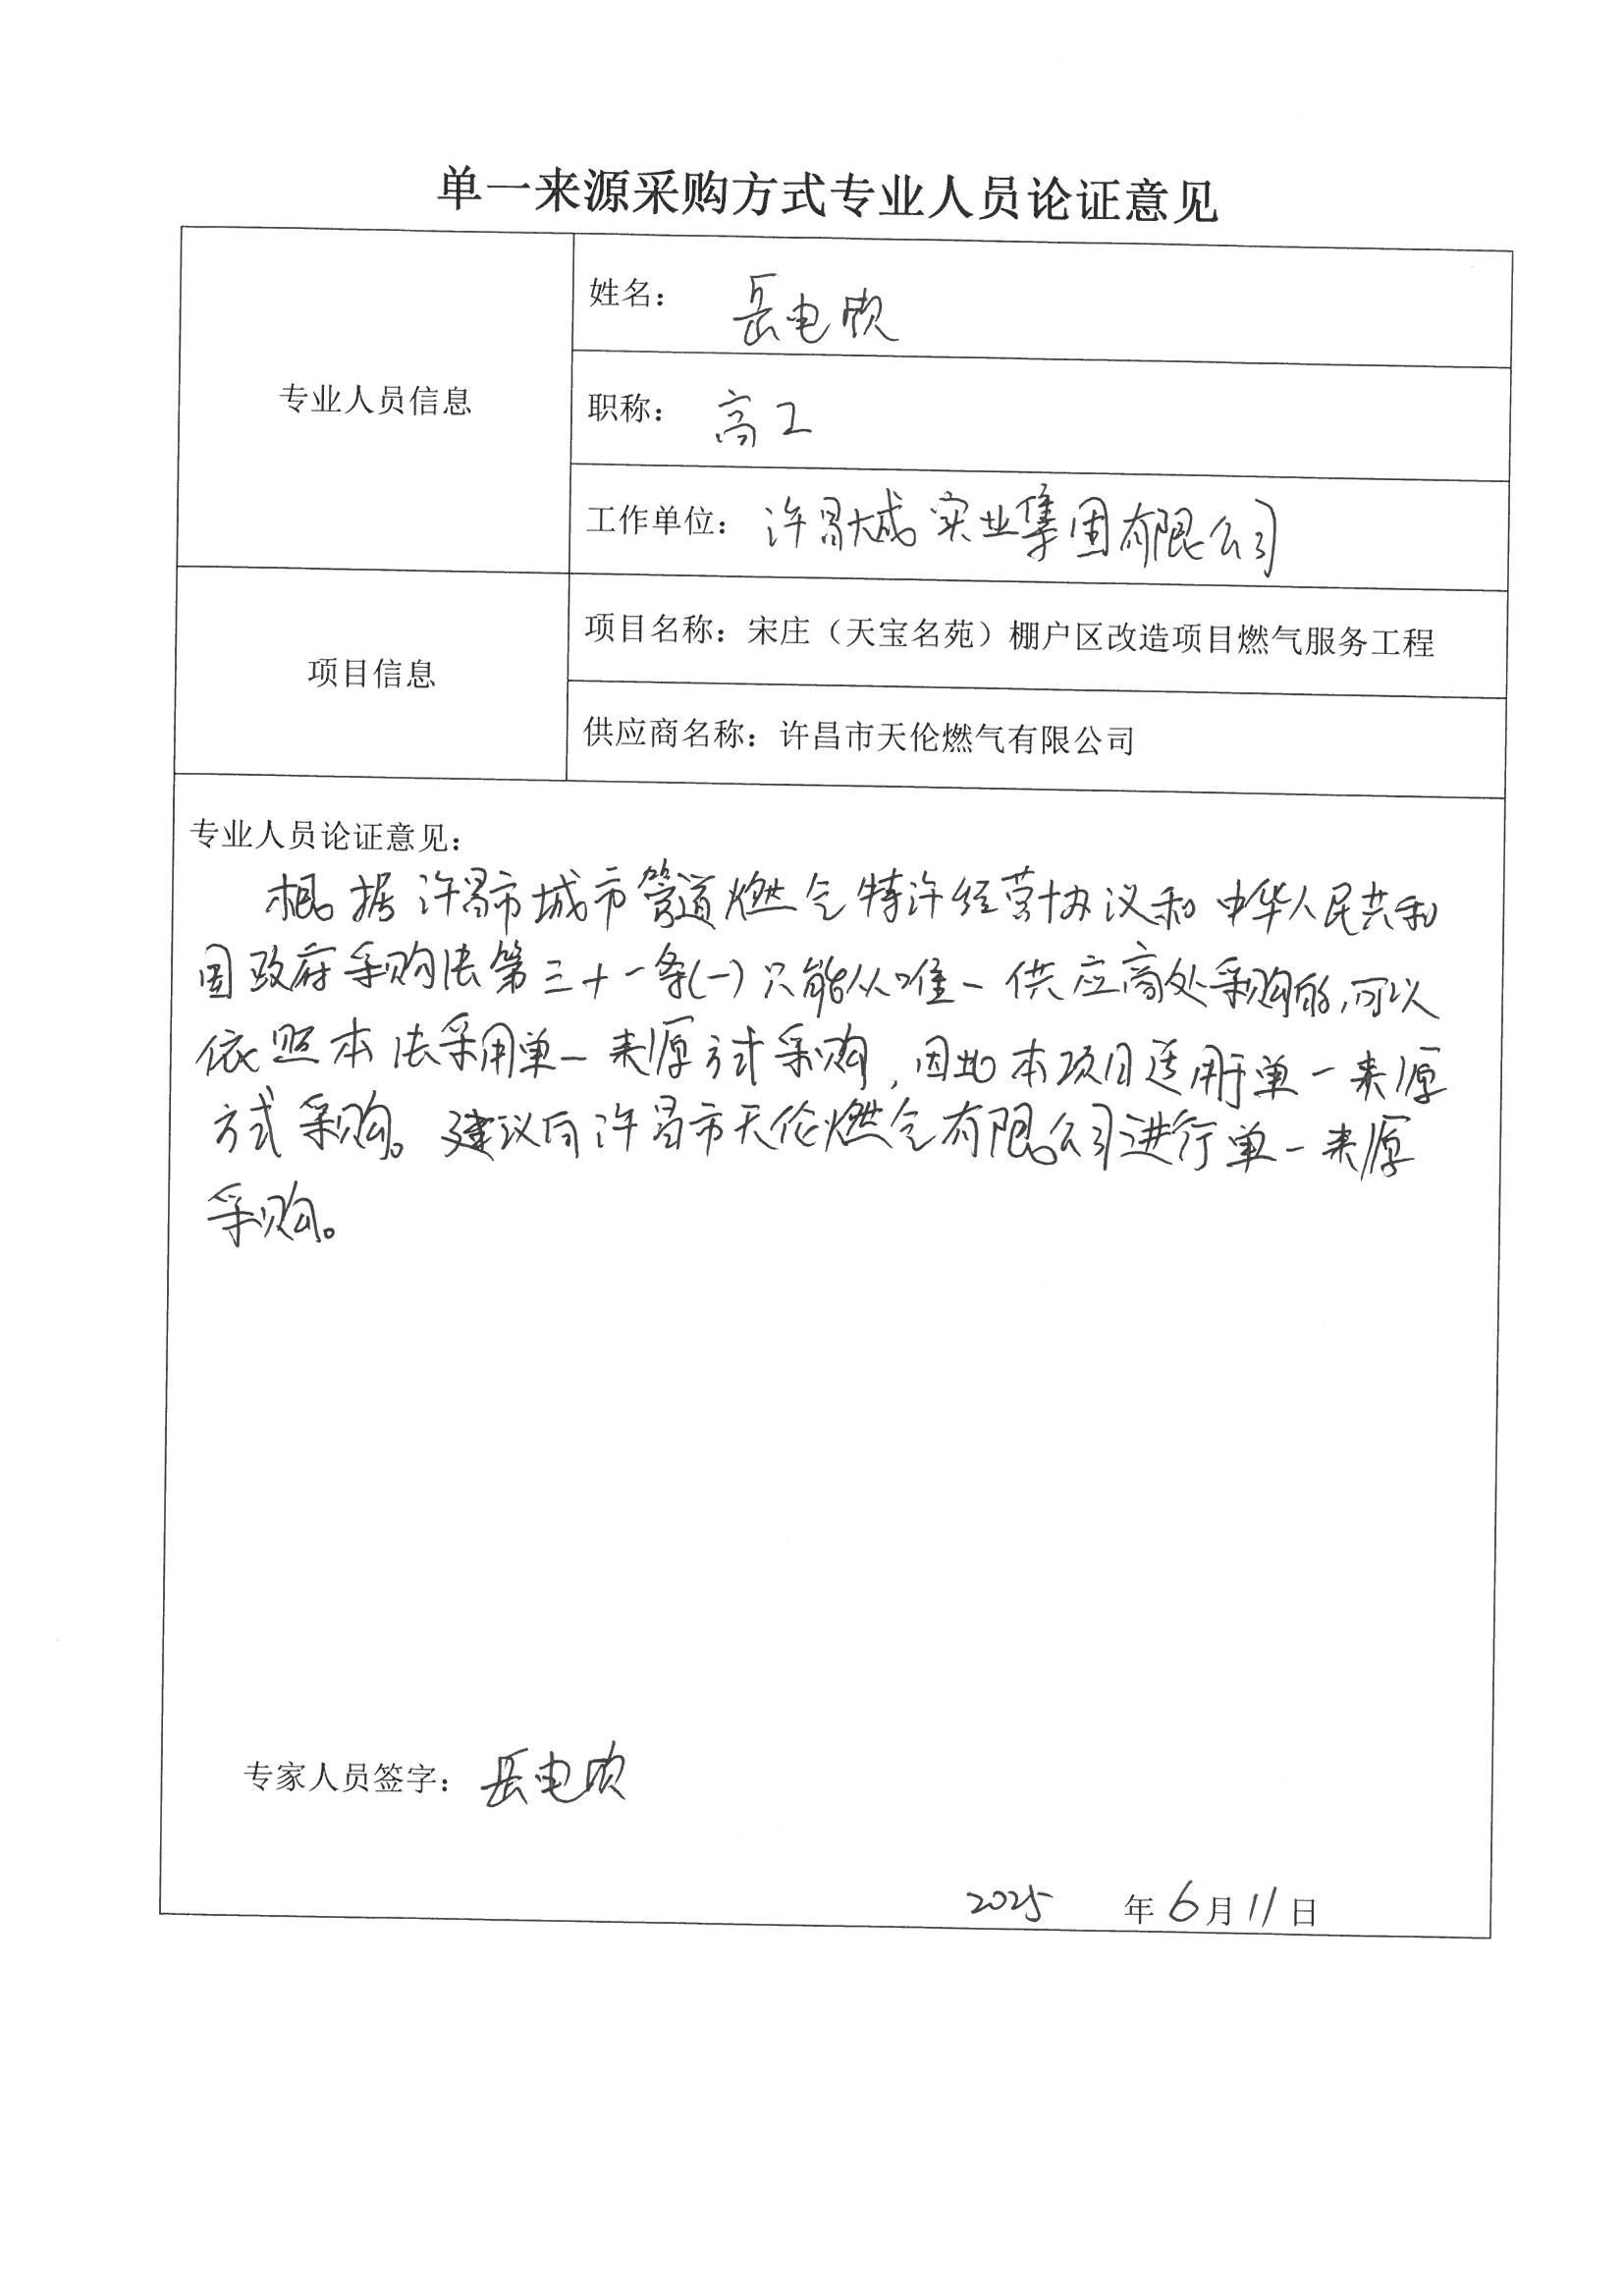 单一来源采购方式专业人员论证意见
专业人员信息
姓名: 岳电欣
职称: 高工
工作单位: 许昌大成实业集团有限公司
项目信息
项目名称: 宋庄（天宝名苑）棚户区改造项目燃气服务工程
供应商名称: 许昌市天伦燃气有限公司
专业人员论证意见:
根据许昌市城市管道燃气特许经营协议和中华人民共和
国政府采购法第三十一条(一)只能从唯一供应商处采购的,可以
依照本法采用单一来源方式采购,因此本项目适用于单一来源
方式采购。建议向许昌市天伦燃气有限公司进行单一来源
采购。
专家人员签字: 岳电欣
2025 年 6 月 11 日